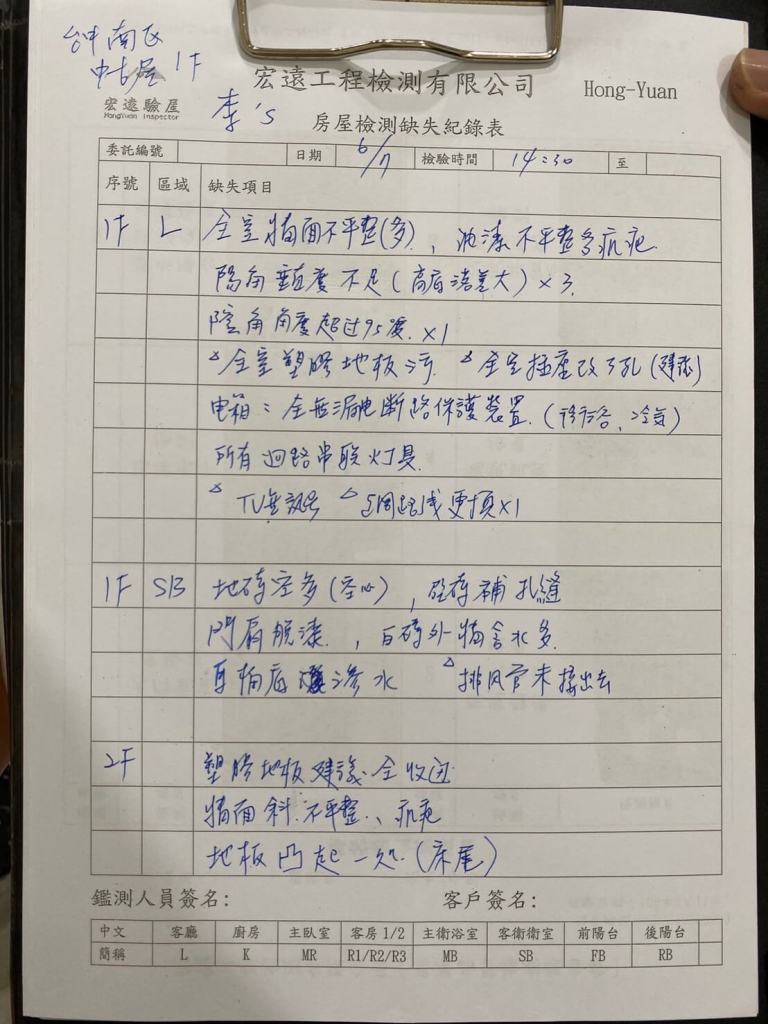 台中南區
中古屋 1F
宏遠工程檢測有限公司 Hong-Yuan
宏遠驗屋
HongYuan Inspector
李's
房屋檢測缺失紀錄表
委託編號 日期 6/7 檢驗時間 14:30 至
序號 區域 缺失項目
1F L 全室牆面不平整(多)、油漆不平整多疤
角垂直度不足(高低落差大)×3.
陰角角度超过95度.×1
△全室塑膠地板污 △全室插座改3孔(建議)
电箱:全無漏电断路保護裝置.(冷氣)
所有迴路串联灯具.
△TV無訊号 △网路线更換×1
1F SB 地磚空多(空心),磁磚補孔縫
門扇脫漆.,白磚外牆含水多.
底滲水 △排风管未接出去
2F 塑膠地板建議全收边
牆面斜.不平整、疤
地板凸起一处.(床尾)
鑑測人員簽名: 客戶簽名:
中文 客廳 廚房 主臥室 客房1/2 主衛浴室 客衛衛室 前陽台 後陽台
簡稱 L K MR R1/R2/R3 MB SB FB RB